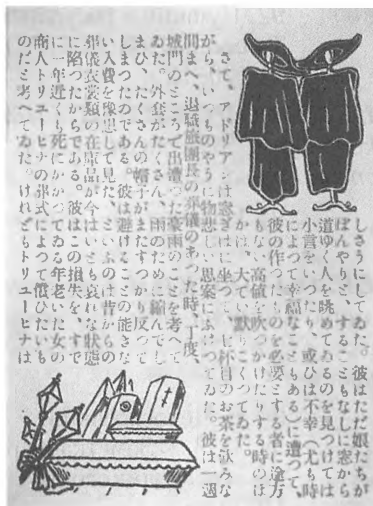 しさうにしてゐた。彼はただ娘たちが
ぼんやりと、することもなしに窓から
道ゆく人を眺めてゐるのを見つけては
小言をいつたり、或ひは不幸(尤も時
によつて幸福なこともある)に遭つて、
彼の作つたものを必要とする者に途方
もない高値を吹つかけたりする時のほ
かは、大てい默りこくつてゐた。
さて、アドリアンは窓ぎはに坐つて、七杯目のお茶を飲みな
がら、いつものやうに物悲しい思案にふけつてゐた。彼は一週
間まへ、退職旅團長の葬儀のあつた時、丁度、
城門のところで出遭つた豪雨のことを考へて
ゐた。外套がたくさん、雨のために縮んでし
まひ、たくさんの帽子がまたすつかり反つて
しまつたのである。彼は避けることの能きな
い入費を豫想して見た、といふのは昔からの
葬儀衣裳類の在庫品が今はいとも哀れな狀態
に陷つたからである。彼はこの損失を、すで
に一年近くも死にかかつてゐる年老いた女の
商人トリユーヒナの葬式によつて償ひたいも
のだと考へてゐた。けれどもトリユーヒナは